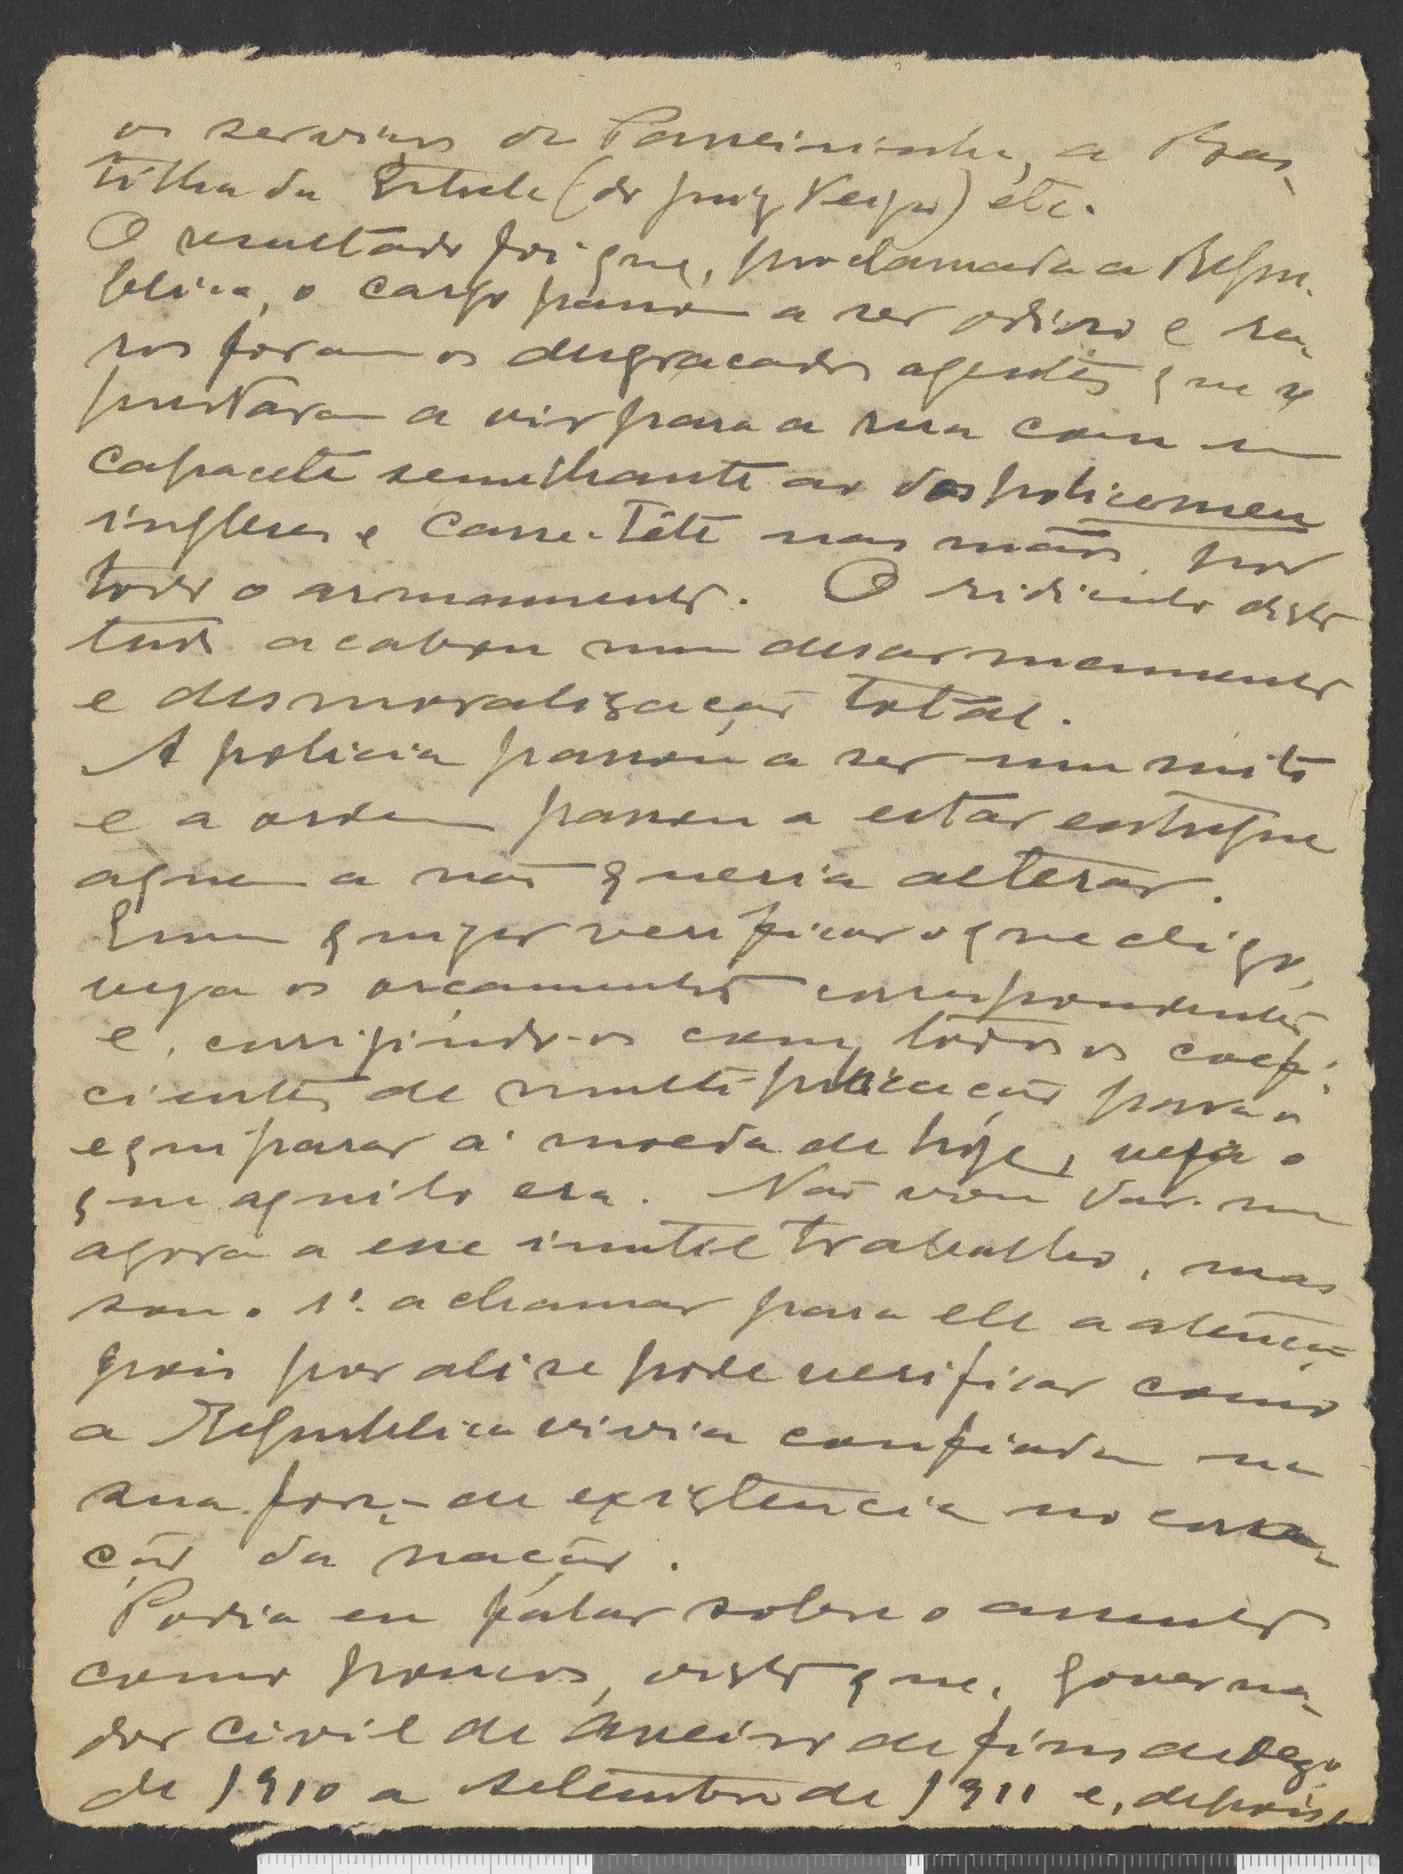 os serviços da Parreirinha, a Bas-
tilha da Estrela (do juiz Veiga) etc.
O resultado foi que, proclamada a Repu-
blica, o cargo passou a ser odioso e ra-
ros foram os desgraçados agentes que se
prestaram a vir para a rua com um
capacete semelhante ao dos policemen
ingleses e casse-tête nas mãos por
todo o armamento. O ridiculo disto
tudo acabou num desarmamento
e desmoralização total.
A policia passou a ser um mito
e a ordem passou a estar entregue
a quem a não queria alterar.
Quem quizer verificar o que digo,
veja os orçamentos correspondentes
e, corrigindo-os com todos os coefi-
cientes de multiplicação para a
equiparar á moeda de hoje, veja o
que aquilo era. Não vou dar-me
agora a esse inutil trabalho, mas
sou o 1º. a chamar para ele a atenção
pois por ali se pode verificar como
a Republica vivia confiada na
sua força de existencia no cora-
ção da nação.
Podia eu falar sobre o assunto
como poucos, visto que, governa-
dor civil de Aveiro de fins de dezº
de 1910 a setembro de 1911 e, depois,